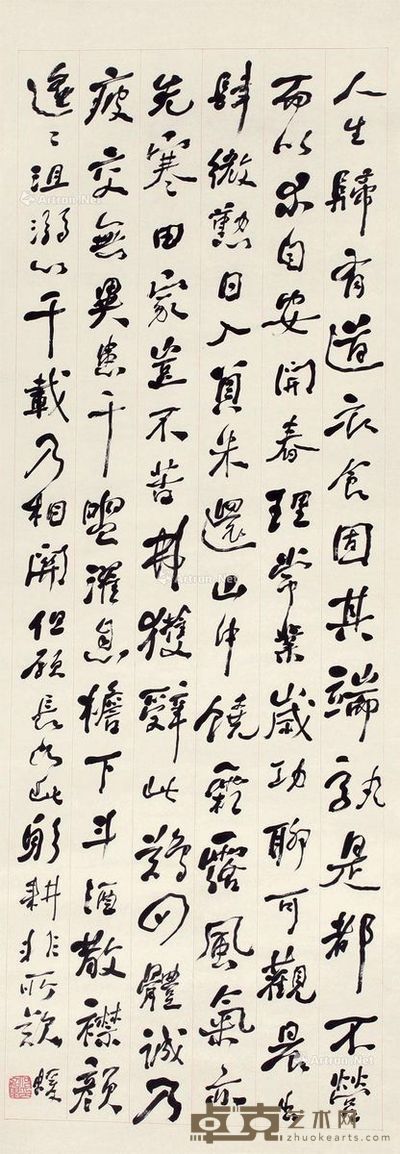 人生歸有道衣食固其端孰是都不營
而以求自安開春理常業歲功聊可觀晨出
肆微懃日入負耒還山中饒霜露風氣亦
先寒田家豈不苦弗獲辭此難四體誠乃
疲交無異患干盥濯息檐下斗酒散襟顏
遙〻沮溺心千載乃相關但願長如此躬耕非所歎
Artron.Net
卓克艺术网
zhuokearts.com